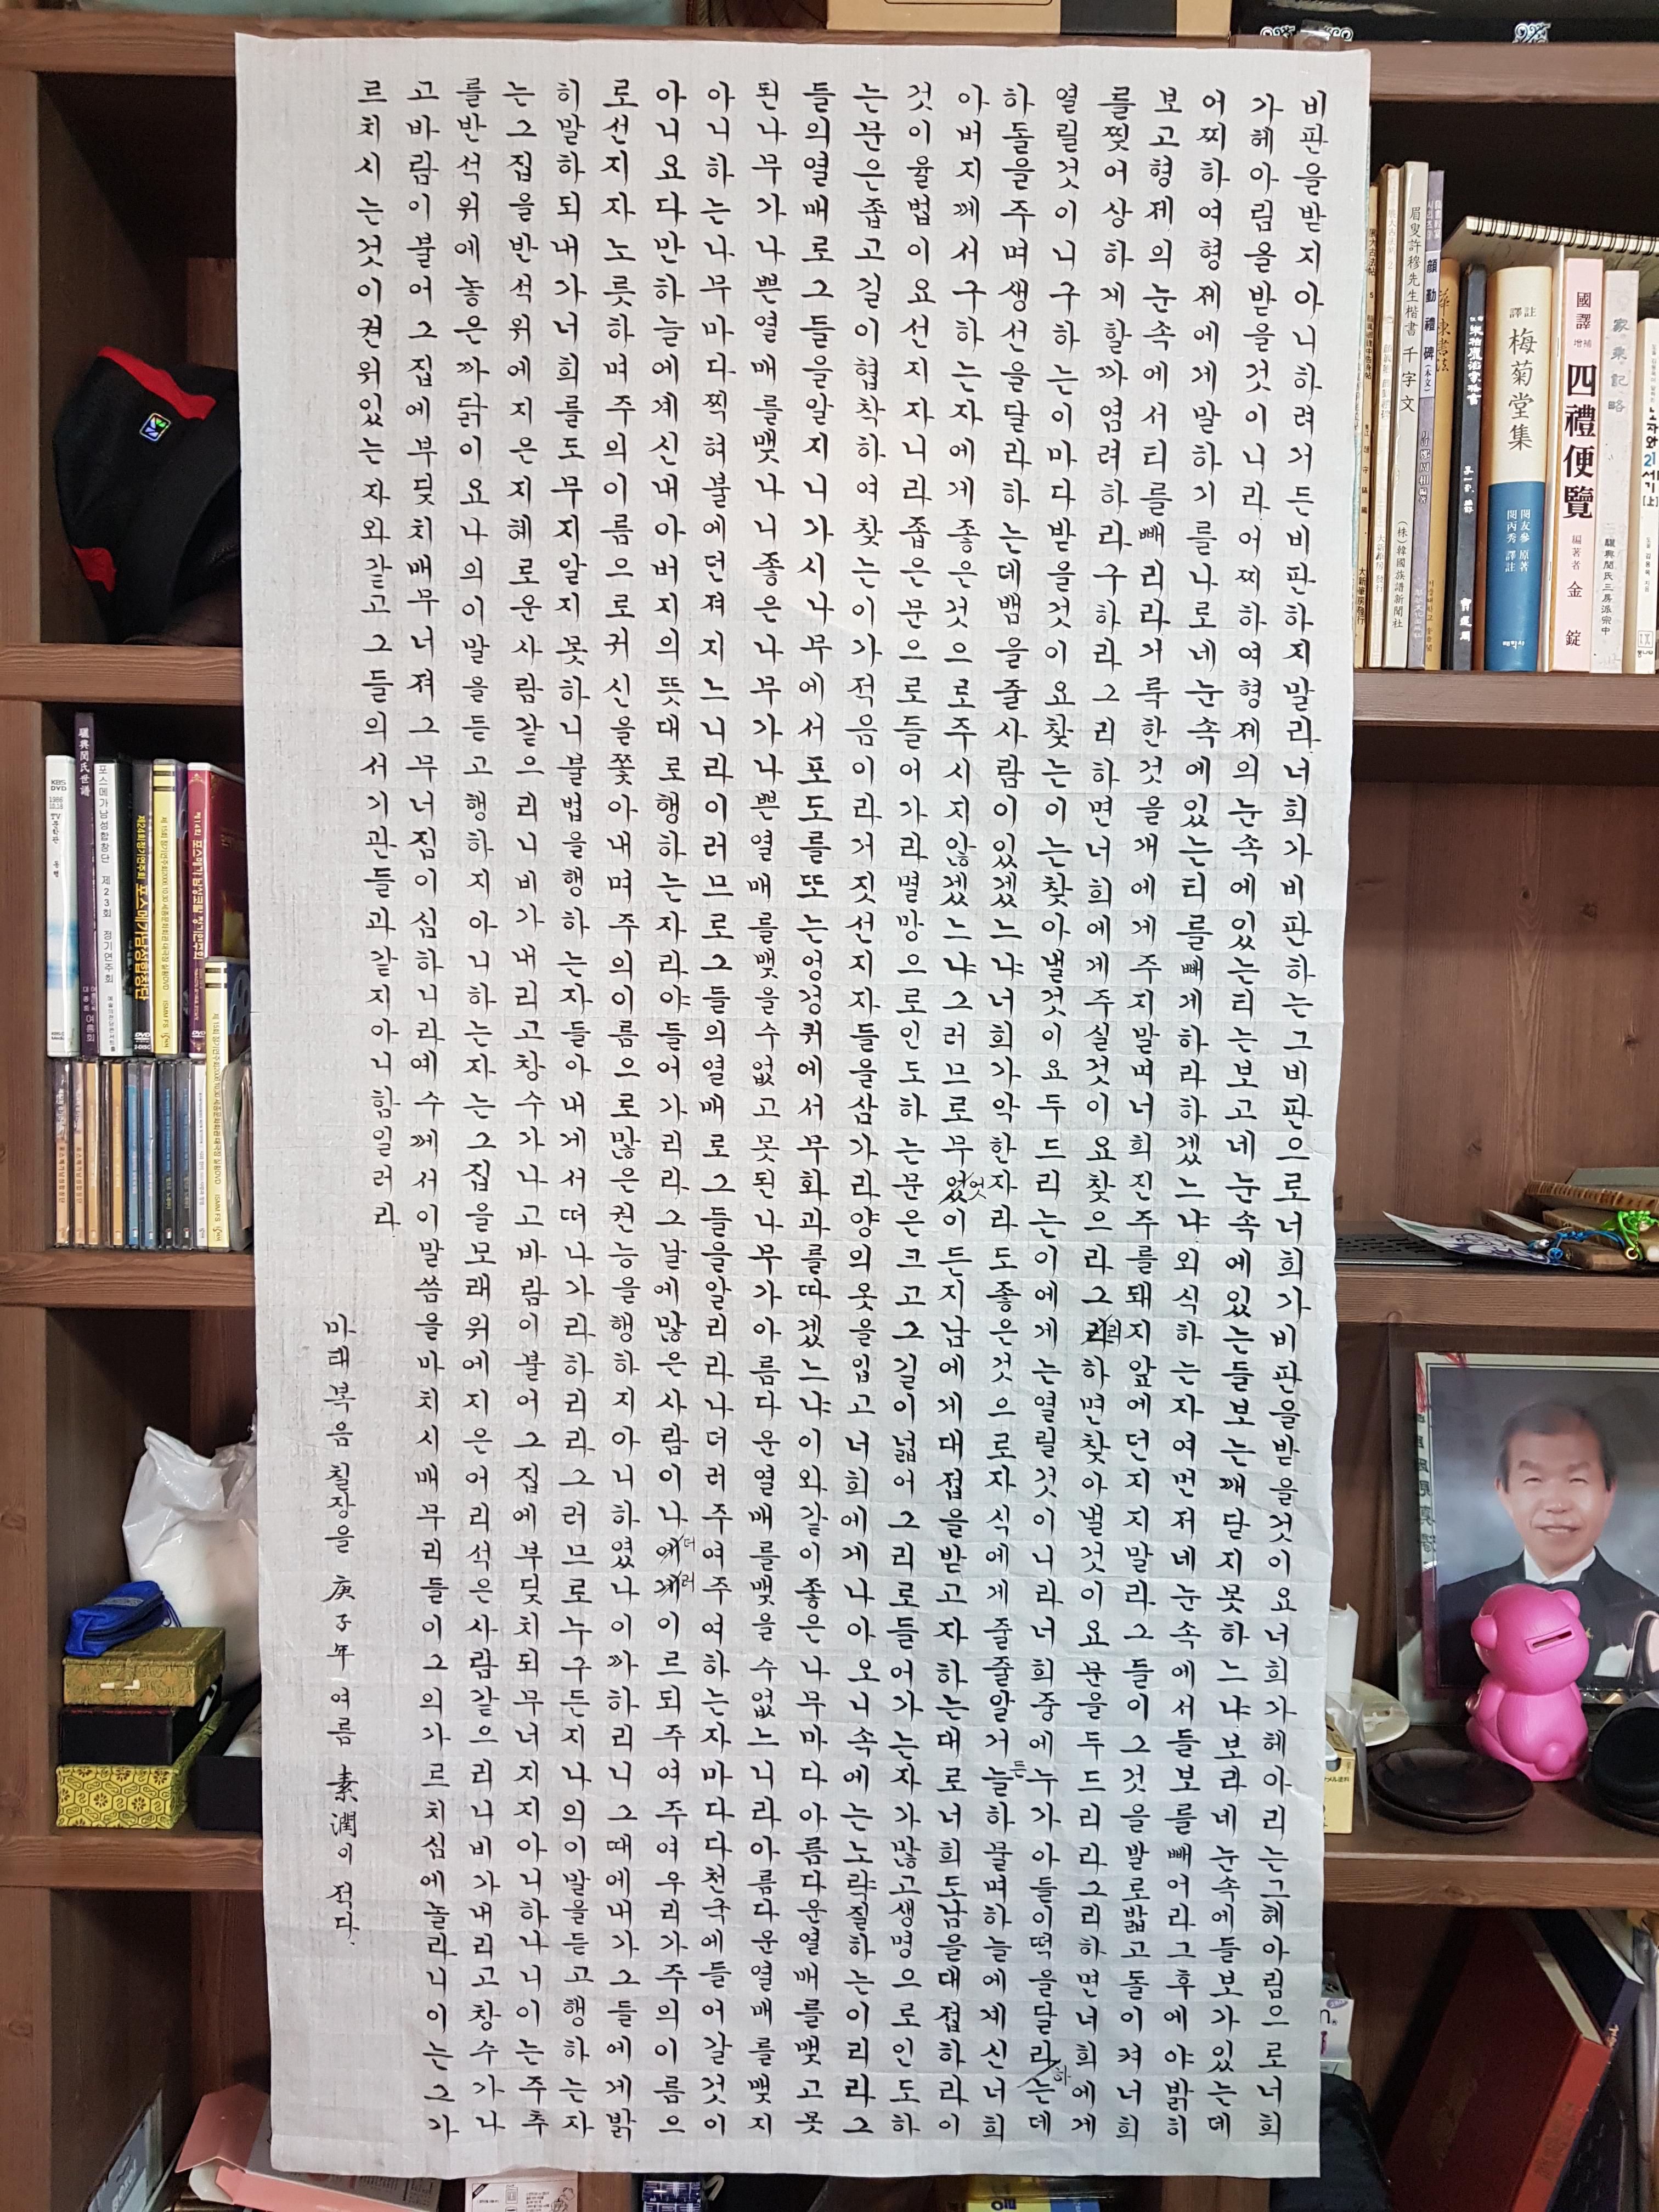 비판을받지아니하려거든비판하지말라너희가비판하는그비판으로너희가비판을받을것이요너희가헤아리는그헤아림으로너희
가헤아림을받을것이니라어찌하여형제의눈속에있는티는보고네눈속에있는들보는깨닫지못하느냐보라네눈속에들보가있는데
어찌하여형제에게말하기를나로네눈속에있는티를빼게하라하겠느냐외식하는자여먼저네눈속에서들보를빼어라그후에야밝히
보고형제의눈속에서티를빼리라거룩한것을개에게주지말며너희진주를돼지앞에던지지말라그들이그것을발로밟고돌이켜너희
를찢어상하게할까염려하라구하라그리하면너희에게주실것이요찾으라그리하면찾아낼것이요문을두드리라그리하면너희에게
열릴것이니구하는이마다받을것이요찾는이는찾아낼것이요두드리는이에게는열릴것이니라너희중에누가아들이떡을달라하는데
하돌을주며생선을달라하는데뱀을줄사람이있겠느냐너희가악한자라도좋은것으로자식에게줄줄알거늘하물며하늘에계신너희
아버지께서구하는자에게좋은것으로주시지않겠느냐그러므로무엇이든지남에게대접을받고자하는대로너희도남을대접하라이
것이율법이요선지자니라좁은문으로들어가라멸망으로인도하는문은크고그길이넓어그리로들어가는자가많고생명으로인도하
는문은좁고길이협착하여찾는이가적음이라거짓선지자들을삼가라양의옷을입고너희에게나아오니속에는노략질하는이리라그
들의열매로그들을알지니가시나무에서포도를또는엉겅퀴에서무화과를따겠느냐이와같이좋은나무마다아름다운열매를맺고못
된나무가나쁜열매를맺나니좋은나무가나쁜열매를맺을수없고못된나무가아름다운열매를맺을수없느니라아름다운열매를맺지
아니하는나무마다찍혀불에던져지느니라이러므로그들의열매로그들을알리라나더러주여주여하는자마다다천국에들어갈것이
아니요다만하늘에계신내아버지의뜻대로행하는자라야들어가리라그날에많은사람이나더러이르되주여주여우리가주의이름으
로선지자노릇하며주의이름으로귀신을쫓아내며주의이름으로많은권능을행하지아니하였나이까하리니그때에내가그들에게밝
히말하되내가너희를도무지알지못하니불법을행하는자들아내게서떠나가라하리라그러므로누구든지나의이말을듣고행하는자
는그집을반석위에지은지혜로운사람같으리니비가내리고창수가나고바람이불어그집에부딪치되무너지지아니하나니이는주추
를반석위에놓은까닭이요나의이말을듣고행하지아니하는자는그집을모래위에지은어리석은사람같으리니비가내리고창수가나
고바람이불어그집에부딪치매무너져그무너짐이심하니라예수께서이말씀을마치시매무리들이그의가르치심에놀라니이는그가
르치시는것이권위있는자와같고그들의서기관들과같지아니함일러라
마태복음 칠장을 庚子年 여름 素潤이 적다.
眉叟許穆先生楷書 千字文
(株)韓國族譜新聞社
顔勤禮碑(本文)
譯註 梅菊堂集
閔友參 原著
閔丙秀 譯註
國譯 增補 四禮便覽 編著者 金錠
家乘記略
驪興閔氏三房派宗中
驪興閔氏世譜
KBS DVD
포스메가남성합창단 제23회 정기연주회
제24회정기연주회 포스메가남성합창단